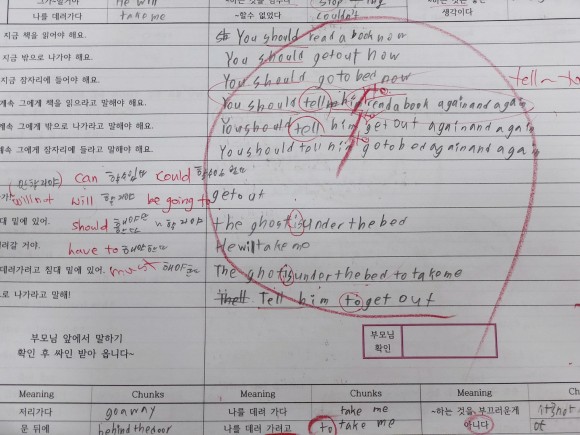 나를 데려가다 take me ~할수 없었다 couldn't 생각이다
지금 책을 읽어야 해요. You should read a book now
지금 밖으로 나가야 해요. You should get out now
지금 잠자리에 들어야 해요. You should go to bed now
tell ~ to
계속 그에게 책을 읽으라고 말해야 해요. You should tell him to read a book again and again
계속 그에게 밖으로 나가라고 말해야 해요. You should tell him to get out again and again
계속 그에게 잠자리에 들라고 말해야 해요. You should tell him to go to bed again and again
can 할수있다 could
will not will 할거야 be going to get out
대 밑에 있어. should the ghost is under the bed
려갈 거야. have to 해야한다 He will take me
데려가려고 침대 밑에 있어. must 해야한다 The ghot is under the bed to take me
으로 나가라고 말해! Thell Tell him to get out
부모님 앞에서 말하기
확인 후 싸인 받아 옵니다~
부모님
확인
Meaning Chunks Meaning Chunks Meaning Chunks
저리가다 go away 나를 데려 가다 take me ~하는 것을 부끄러운게 it's not
문 뒤에 behind the door 나를 데려 가려고 to take me 아니다 ot